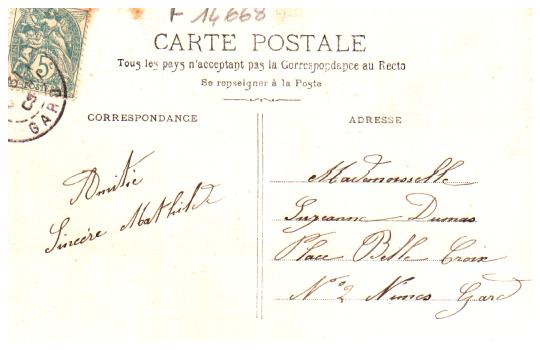 F 14668
CARTE POSTALE
Tous les pays n'acceptant pas la Correspondance au Recto
Se renseigner à la Poste
CORRESPONDANCE
ADRESSE
Amitié
Sincère Mathilde
Mademoiselle
Suzanne Dumas
Place Belle Croix
N° 2 Nimes Gard
5
GARD